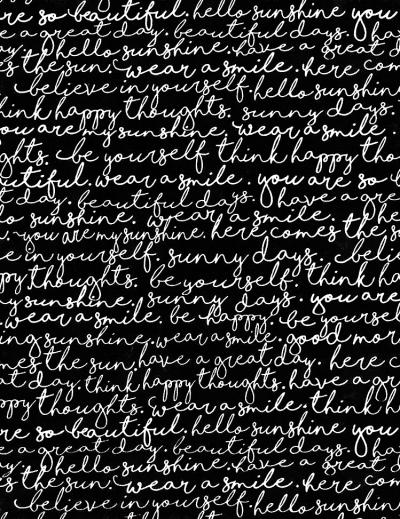 re so beautiful. hello sunshine you
e a great day. beautiful days. ha
y. hello sunshine. have a great d
es the sun. wear a smile. here com
believe in yourself. hello sunshin
hink happy thoughts. sunny days.
you are my sunshine. wear a smile.
ghts. be yourself. think happy tho
autiful. wear a smile. you are so b
day. beautiful days. have a gre
o sunshine. wear a smile.
you are my sunshine. here comes the s
e in yourself. sunny days. beli
ppy thoughts. be yourself. think h
y sunshine. sunny days. you are
wear a smile. be happy. be yourself
ing sunshine. wear a smile. good mor
mes the sun. have a great day. here c
at day. think happy thoughts. have a gr
ppy thoughts. wear a smile. think h
re so beautiful. hello sunshine you
e a great day. beautiful days. ha
y. hello sunshine. have a great d
es the sun. wear a smile. here com
believe in yourself. hello sunshin